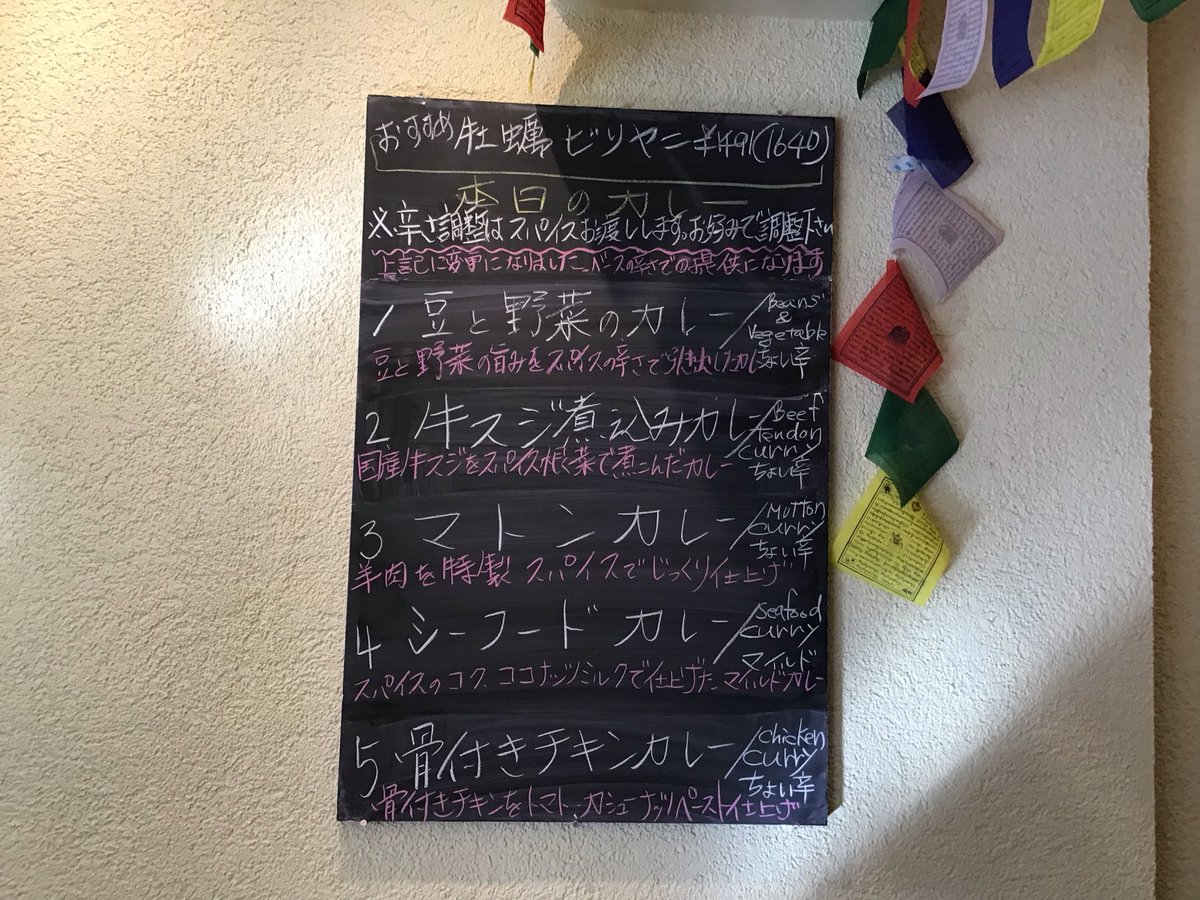 おすすめ 牡蠣ビリヤニ ¥1491(1640)
本日のカレー
※辛さ調整はスパイスお渡しします。お好みで調整下さい
上記に変更になりました。ベースの辛さでの提供になります
1 豆と野菜のカレー/Beans & Vegetable ちょい辛
豆と野菜の旨みをスパイスの辛さで引き出したカレー
2 牛スジ煮込みカレー/Beef tendon curry ちょい辛
国産牛スジをスパイス根菜で煮こんだカレー
3 マトンカレー/Mutton curry ちょい辛
羊肉を特製スパイスでじっくり仕上げ
4 シーフードカレー/Seafood curry マイルド
スパイスのコク、ココナッツミルクで仕上げたマイルドカレー
5 骨付きチキンカレー/chicken curry ちょい辛
骨付きチキンをトマト、カシューナッツペースト仕上げ